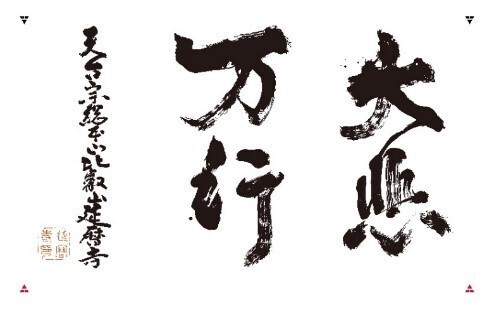 大悲
万行
天台宗総本山比叡山延暦寺